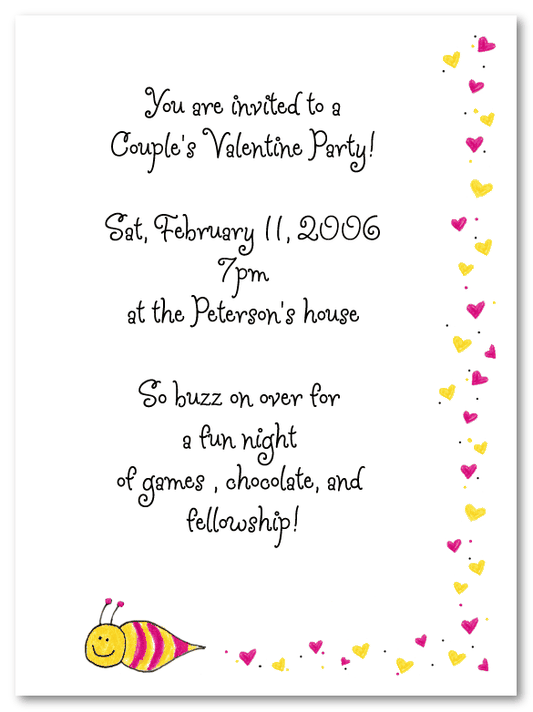 You are invited to a
Couple's Valentine Party!
Sat, February 11, 2006
7pm
at the Peterson's house
So buzz on over for
a fun night
of games , chocolate, and
fellowship!